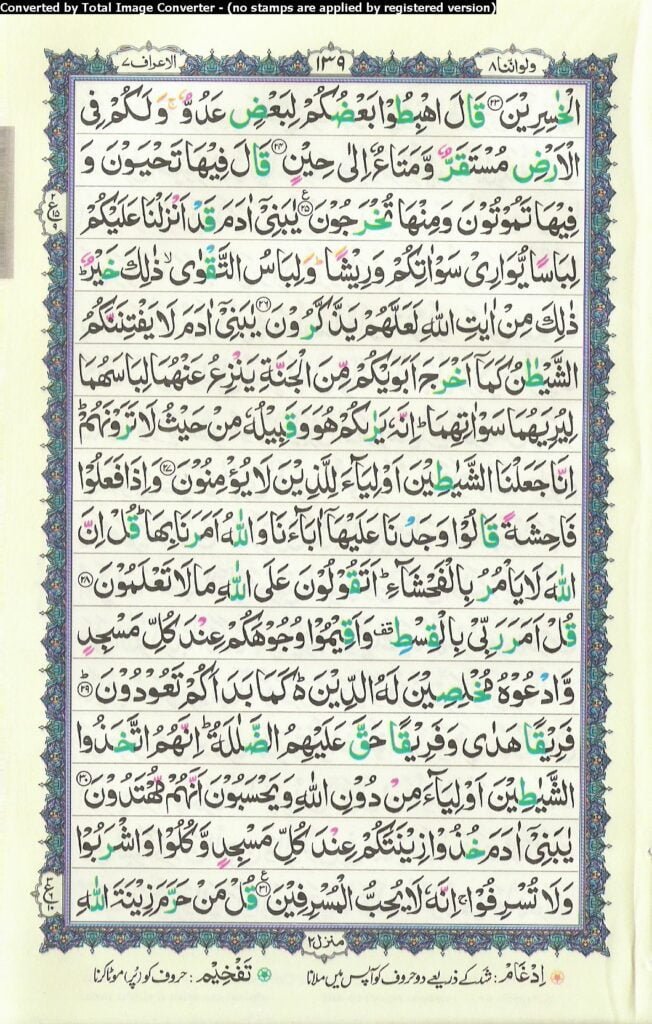 Converted by Total Image Converter - (no stamps are applied by registered version)
ولواننا ٨ ١٣٩ الاعراف ٧
الْخٰسِرِيْنَ ﴿۲۳﴾ قَالَ اهْبِطُوْا بَعْضُكُمْ لِبَعْضٍ عَدُوٌّ ۚ وَلَكُمْ فِى
الْاَرْضِ مُسْتَقَرٌّ وَّمَتَاعٌ اِلٰى حِيْنٍ ﴿۲۴﴾ قَالَ فِيْهَا تَحْيَوْنَ وَ
فِيْهَا تَمُوْتُوْنَ وَمِنْهَا تُخْرَجُوْنَ ﴿۲۵﴾ يٰبَنِىْۤ اٰدَمَ قَدْ اَنْزَلْنَا عَلَيْكُمْ
لِبَاسًا يُّوَارِىْ سَوْاٰتِكُمْ وَرِيْشًا ؕ وَلِبَاسُ التَّقْوٰى ۙ ذٰلِكَ خَيْرٌ ؕ
ذٰلِكَ مِنْ اٰيٰتِ اللّٰهِ لَعَلَّهُمْ يَذَّكَّرُوْنَ ﴿۲۶﴾ يٰبَنِىْۤ اٰدَمَ لَا يَفْتِنَنَّكُمُ
الشَّيْطٰنُ كَمَاۤ اَخْرَجَ اَبَوَيْكُمْ مِّنَ الْجَنَّةِ يَنْزِعُ عَنْهُمَا لِبَاسَهُمَا
لِيُرِيَهُمَا سَوْاٰتِهِمَا ؕ اِنَّهٗ يَرٰىكُمْ هُوَ وَقَبِيْلُهٗ مِنْ حَيْثُ لَا تَرَوْنَهُمْ ؕ
اِنَّا جَعَلْنَا الشَّيٰطِيْنَ اَوْلِيَآءَ لِلَّذِيْنَ لَا يُؤْمِنُوْنَ ﴿۲۷﴾ وَاِذَا فَعَلُوْا
فَاحِشَةً قَالُوْا وَجَدْنَا عَلَيْهَاۤ اٰبَآءَنَا وَاللّٰهُ اَمَرَنَا بِهَا ؕ قُلْ اِنَّ
اللّٰهَ لَا يَاْمُرُ بِالْفَحْشَآءِ ؕ اَتَقُوْلُوْنَ عَلَى اللّٰهِ مَا لَا تَعْلَمُوْنَ ﴿۲۸﴾
قُلْ اَمَرَ رَبِّىْ بِالْقِسْطِ قف وَاَقِيْمُوْا وُجُوْهَكُمْ عِنْدَ كُلِّ مَسْجِدٍ
وَّادْعُوْهُ مُخْلِصِيْنَ لَهُ الدِّيْنَ ؕ كَمَا بَدَاَكُمْ تَعُوْدُوْنَ ﴿۲۹﴾
فَرِيْقًا هَدٰى وَفَرِيْقًا حَقَّ عَلَيْهِمُ الضَّلٰلَةُ ؕ اِنَّهُمُ اتَّخَذُوا
الشَّيٰطِيْنَ اَوْلِيَآءَ مِنْ دُوْنِ اللّٰهِ وَيَحْسَبُوْنَ اَنَّهُمْ مُّهْتَدُوْنَ ﴿۳۰﴾
يٰبَنِىْۤ اٰدَمَ خُذُوْا زِيْنَتَكُمْ عِنْدَ كُلِّ مَسْجِدٍ وَّكُلُوْا وَاشْرَبُوْا
وَلَا تُسْرِفُوْا ۚ اِنَّهٗ لَا يُحِبُّ الْمُسْرِفِيْنَ ﴿۳۱﴾ قُلْ مَنْ حَرَّمَ زِيْنَةَ اللّٰهِ
منزل ٢
اِدْغَامْ : شدّ کے ذریعے دو حروف کو آپس میں ملانا تَفْخِيْم : حروف کو پُر یا موٹا کرنا